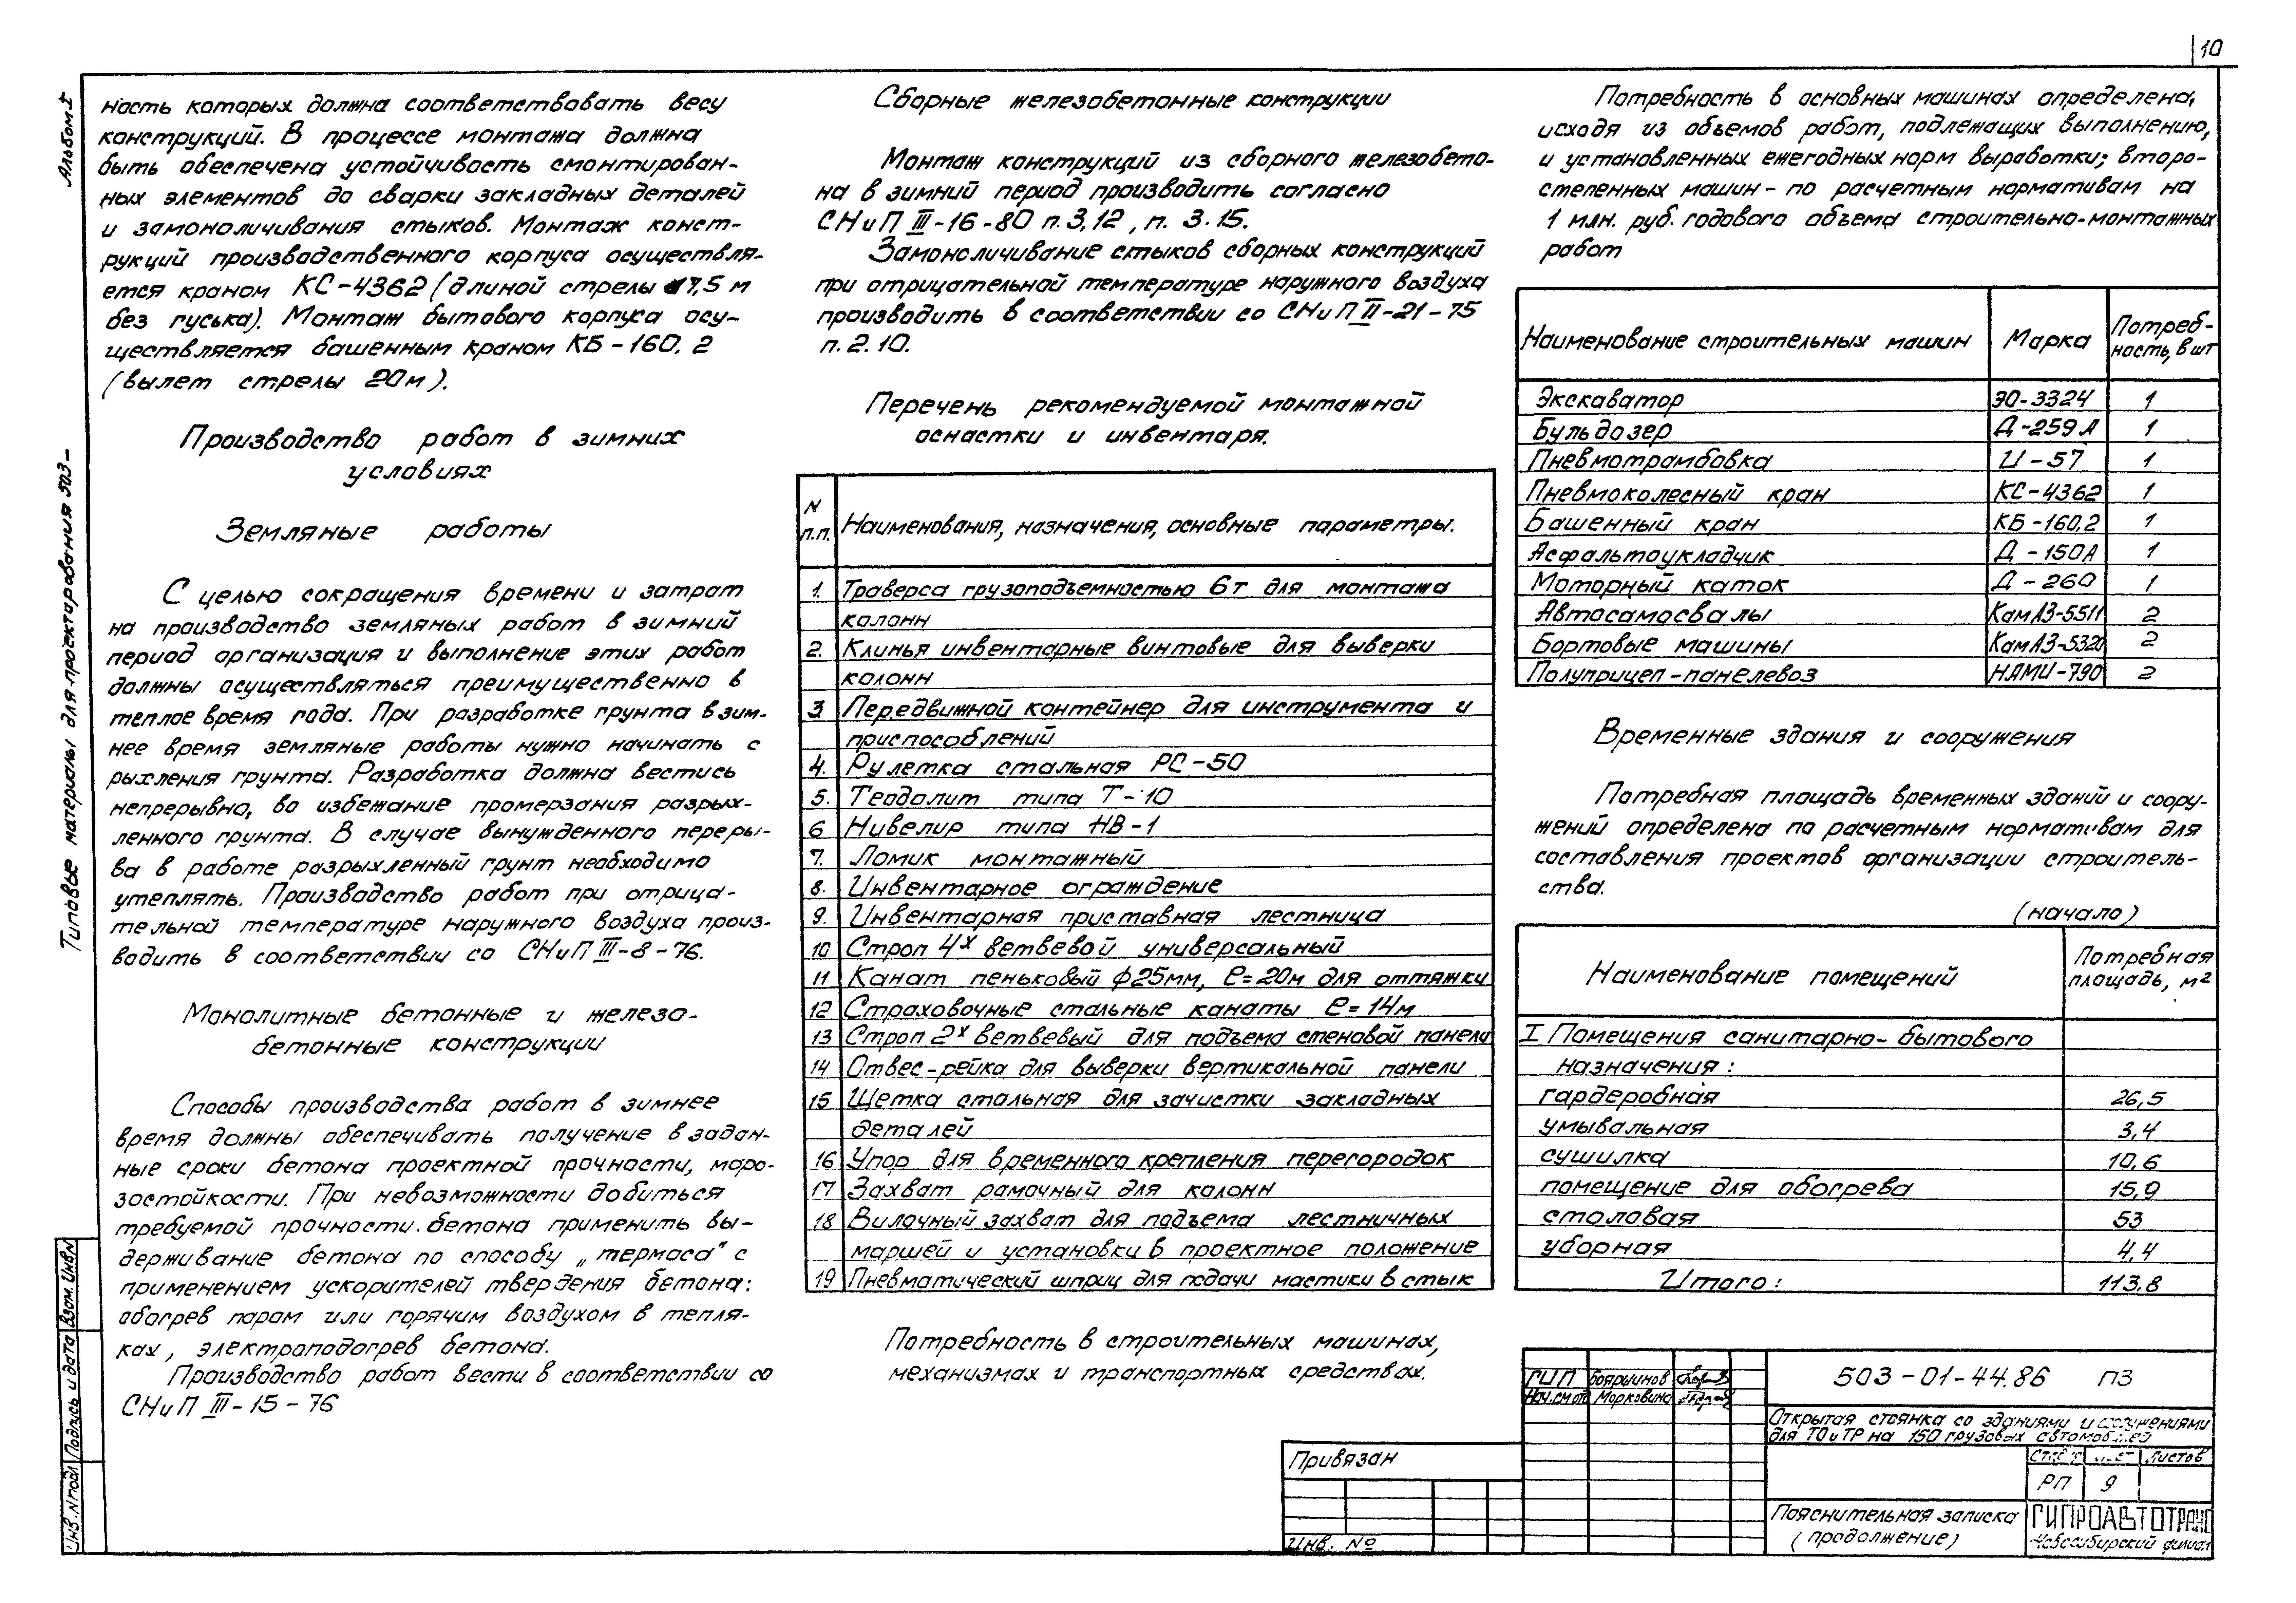 10
Альбом I
Типовые материалы для проектирования 503-
ность которых должна соответствовать весу
конструкций. В процессе монтажа должна
быть обеспечена устойчивость смонтирован-
ных элементов до сварки закладных деталей
и замоноличивания стыков. Монтаж конст-
рукций производственного корпуса осуществля-
ется краном КС-4362 (длиной стрелы 17,5 м
без гуська). Монтаж бытового корпуса осу-
ществляется башенным краном КБ-160.2
(вылет стрелы 20м).
Производство работ в зимних
условиях
Земляные работы
С целью сокращения времени и затрат
на производство земляных работ в зимний
период организация и выполнение этих работ
должны осуществляться преимущественно в
теплое время года. При разработке грунта в зим-
нее время земляные работы нужно начинать с
рыхления грунта. Разработка должна вестись
непрерывно, во избежание промерзания разрых-
ленного грунта. В случае вынужденного переры-
ва в работе разрыхленный грунт необходимо
утеплять. Производство работ при отрица-
тельной температуре наружного воздуха произ-
водить в соответствии со СНиП III-8-76.
Монолитные бетонные и железо-
бетонные конструкции
Способы производства работ в зимнее
время должны обеспечивать получение в задан-
ные сроки бетона проектной прочности, моро-
зостойкости. При невозможности добиться
требуемой прочности бетона применить вы-
держивание бетона по способу „термоса" с
применением ускорителей твердения бетона:
обогрев паром или горячим воздухом в тепля-
ках, электроподогрев бетона.
Производство работ вести в соответствии со
СНиП III-15-76
Сборные железобетонные конструкции
Монтаж конструкций из сборного железобето-
на в зимний период производить согласно
СНиП III-16-80 п.3.12, п. 3.15.
Замоноличивание стыков сборных конструкций
при отрицательной температуре наружного воздуха
производить в соответствии со СНиП II-21-75
п. 2.10.
Перечень рекомендуемой монтажной
оснастки и инвентаря.
N п.п. Наименования, назначения, основные параметры.
1. Траверса грузоподъемностью 6т для монтажа
колонн
2. Клинья инвентарные винтовые для выверки
колонн
3. Передвижной контейнер для инструмента и
приспособлений
4. Рулетка стальная РС-50
5. Теодолит типа Т-10
6 Нивелир типа НВ-1
7. Ломик монтажный
8. Инвентарное ограждение
9. Инвентарная приставная лестница
10 Строп 4х ветвевой универсальный
11 Канат пеньковый ф25мм, ℓ=20м для оттяжки
12 Страховочные стальные канаты ℓ=14м
13 Строп 2х ветвевый для подъема стеновой панели
14 Отвес-рейка для выверки вертикальной панели
15 Щетка стальная для зачистки закладных
деталей
16 Упор для временного крепления перегородок
17 Захват рамочный для колонн
18 Вилочный захват для подъема лестничных
маршей и установки в проектное положение
19 Пневматический шприц для подачи мастики в стык
Потребность в строительных машинах,
механизмах и транспортных средствах.
Потребность в основных машинах определена,
исходя из объемов работ, подлежащих выполнению,
и установленных ежегодных норм выработки; второ-
степенных машин - по расчетным нормативам на
1 млн. руб. годового объема строительно-монтажных
работ
Наименование строительных машин Марка Потреб-
ность, в шт
Экскаватор ЭО-3324 1
Бульдозер Д-259А 1
Пневмотрамбовка И-57 1
Пневмоколесный кран КС-4362 1
Башенный кран КБ-160.2 1
Асфальтоукладчик Д-150А 1
Моторный каток Д-260 1
Автосамосвалы КамАЗ-5511 2
Бортовые машины КамАЗ-5320 2
Полуприцеп-панелевоз НАМИ-790 2
Временные здания и сооружения
Потребная площадь временных зданий и соору-
жений определена по расчетным нормативам для
составления проектов организации строитель-
ства.
(начало)
Наименование помещений Потребная
площадь, м²
I Помещения санитарно-бытового
назначения:
гардеробная 26,5
умывальная 3,4
сушилка 10,6
помещение для обогрева 15,9
столовая 53
уборная 4,4
Итого: 113,8
ГИП Бояршинов
Нач.см.от Морковина
503-01-44.86 ПЗ
Открытая стоянка со зданиями и сооружениями
для ТО и ТР на 150 грузовых автомобилей
Листов
РП 9
Пояснительная записка
(продолжение)
ГИПРОАВТОТРАНС
Новосибирский филиал
Привязан
Инв. №
Инв. N подл Подпись и дата Взам. инв N